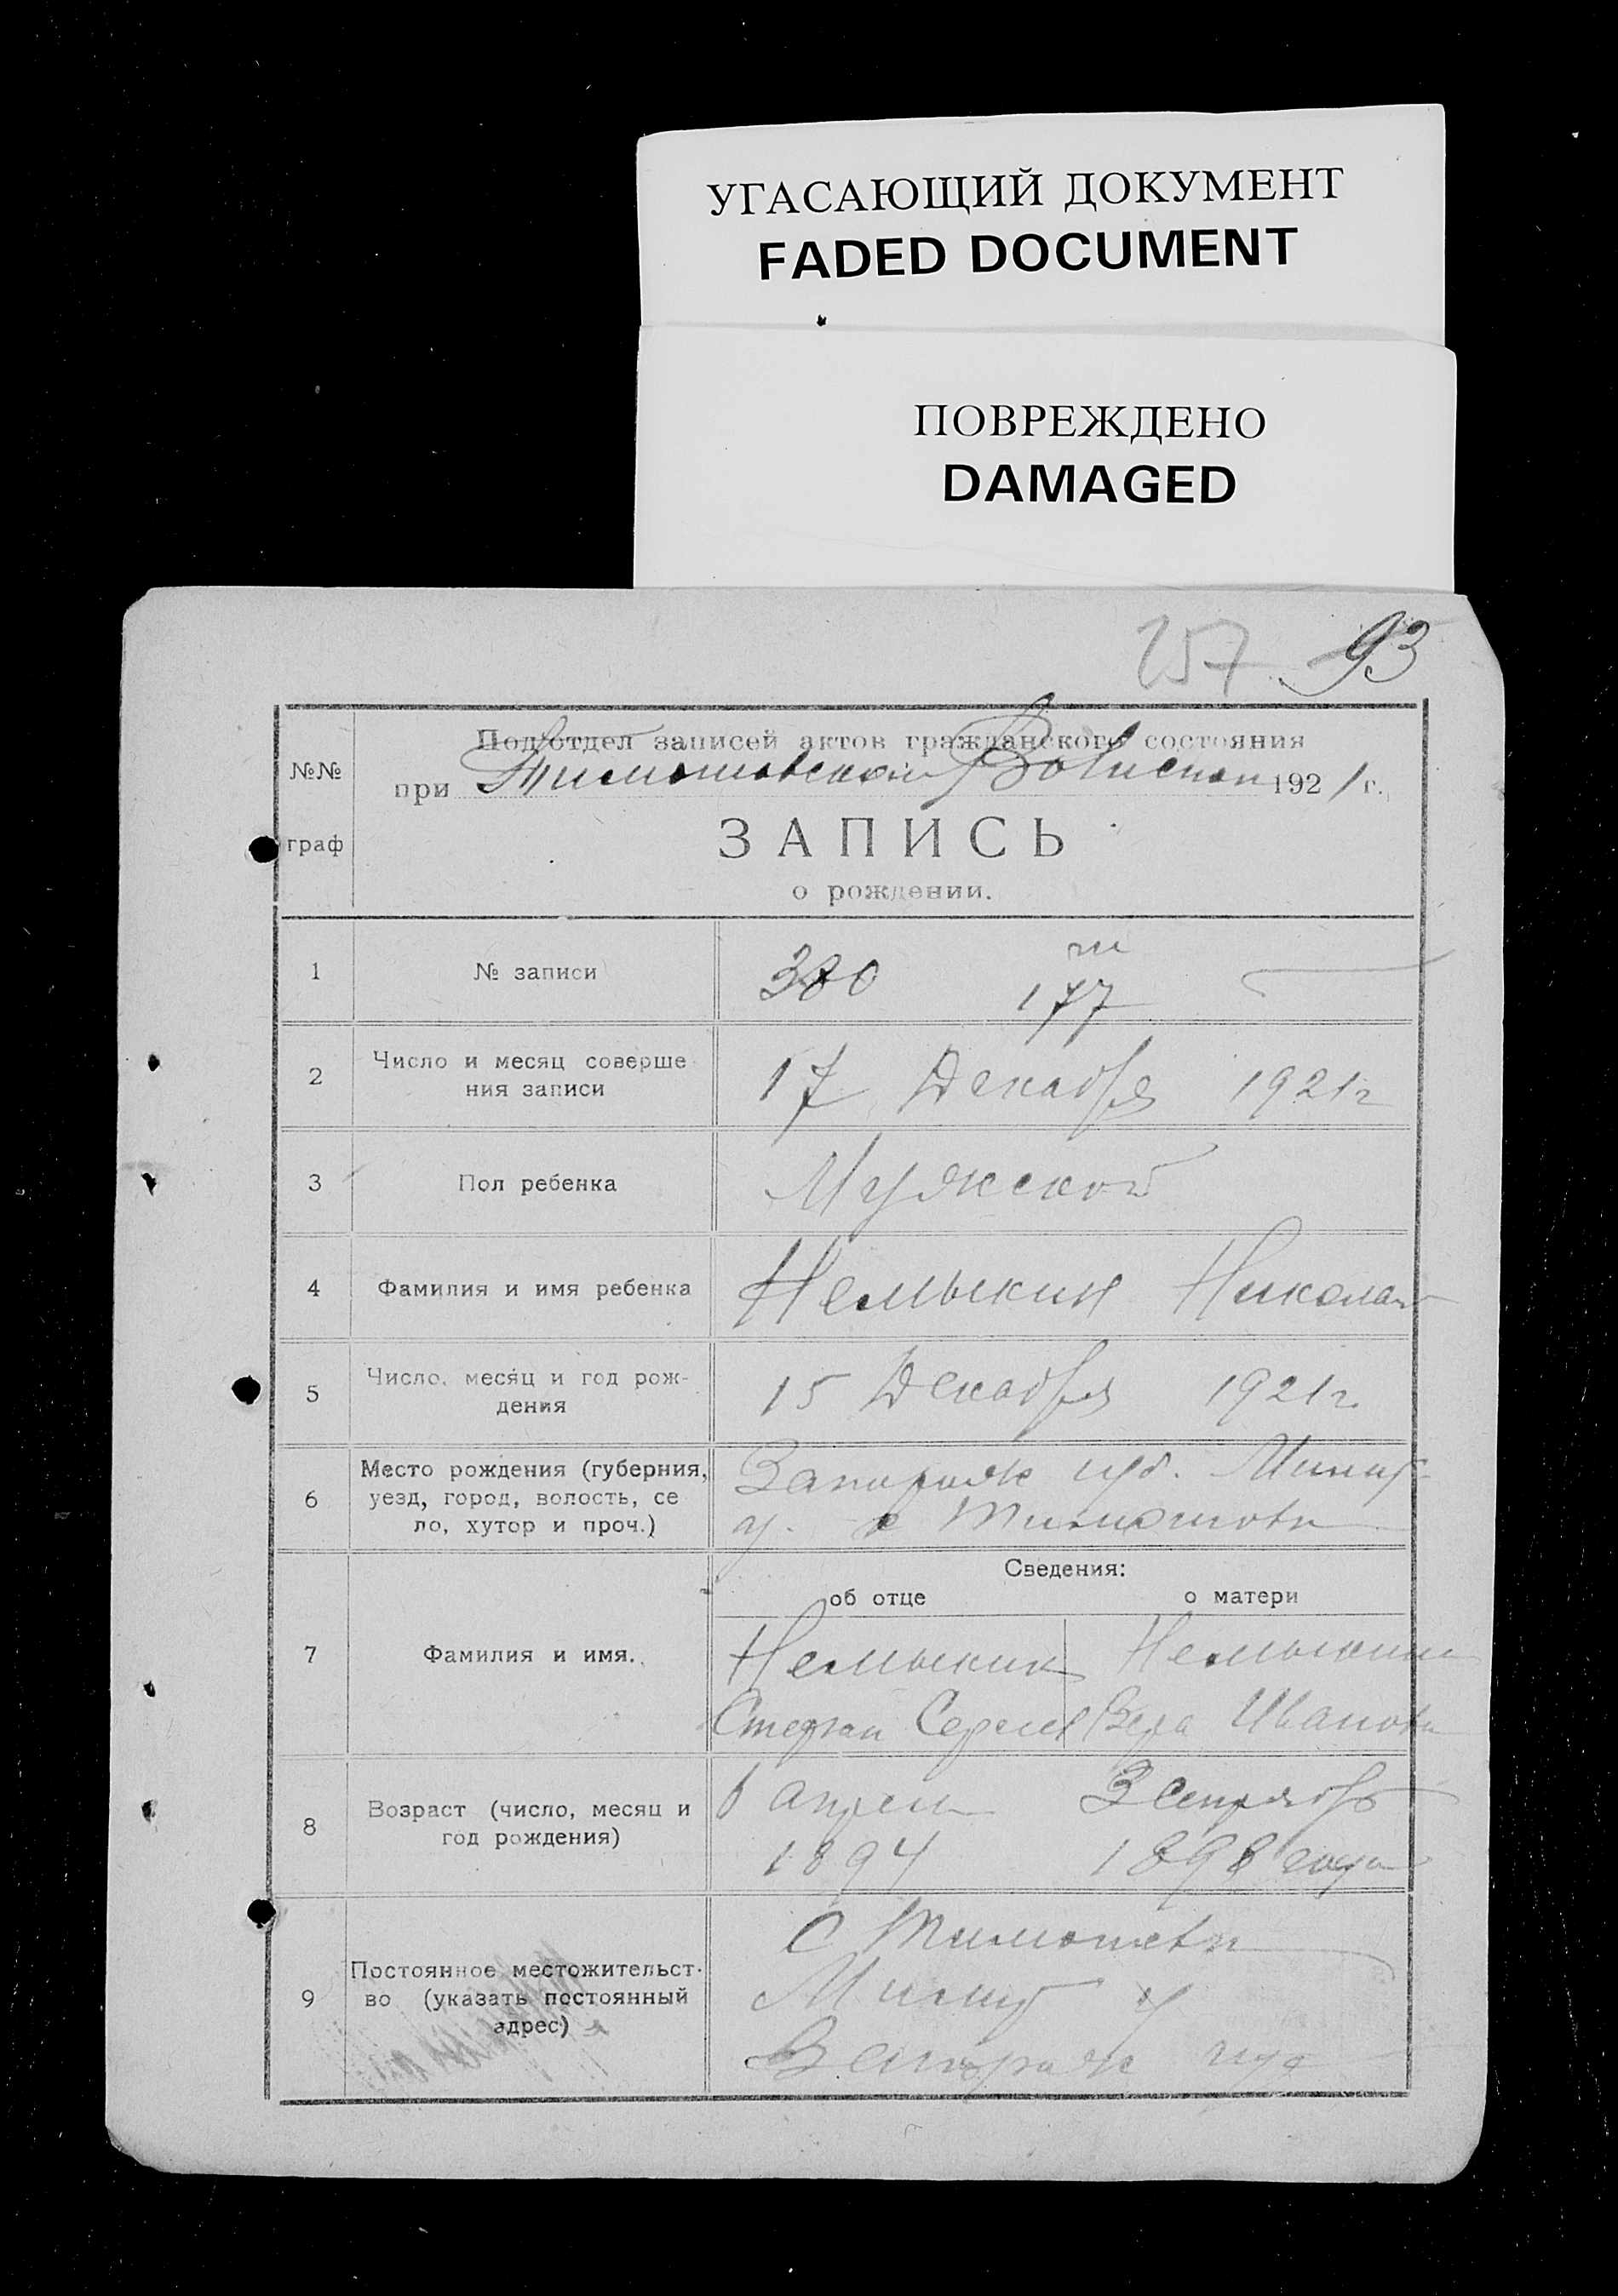 УГАСАЮЩИЙ ДОКУМЕНТ
FADED DOCUMENT
ПОВРЕЖДЕНО
DAMAGED
257 93
№№
граф
Подотдел записей актов гражданского состояния
при Тимошовской Волиспол 1921 г.
ЗАПИСЬ
о рождении.
1 № записи 380 177
2 Число и месяц соверше
ния записи
17 Декабря 1921 г
3 Пол ребенка Мужской
4 Фамилия и имя ребенка Немыкин Николай
5 Число, месяц и год рож-
дения
15 Декабря 1921 г.
6 Место рождения (губерния,
уезд, город, волость, се
ло, хутор и проч.)
Запорож губ.
у. с Тимошовки
Сведения:
об отце о матери
7 Фамилия и имя.
Немыкин Немыкина
Стефан Сергеев Вера Иванова
8 Возраст (число, месяц и
год рождения)
апреля 3 Сентябр
1894 1898 года
9 Постоянное местожительст-
во (указать постоянный
адрес)
С Тимошовки
у
Запорож губ